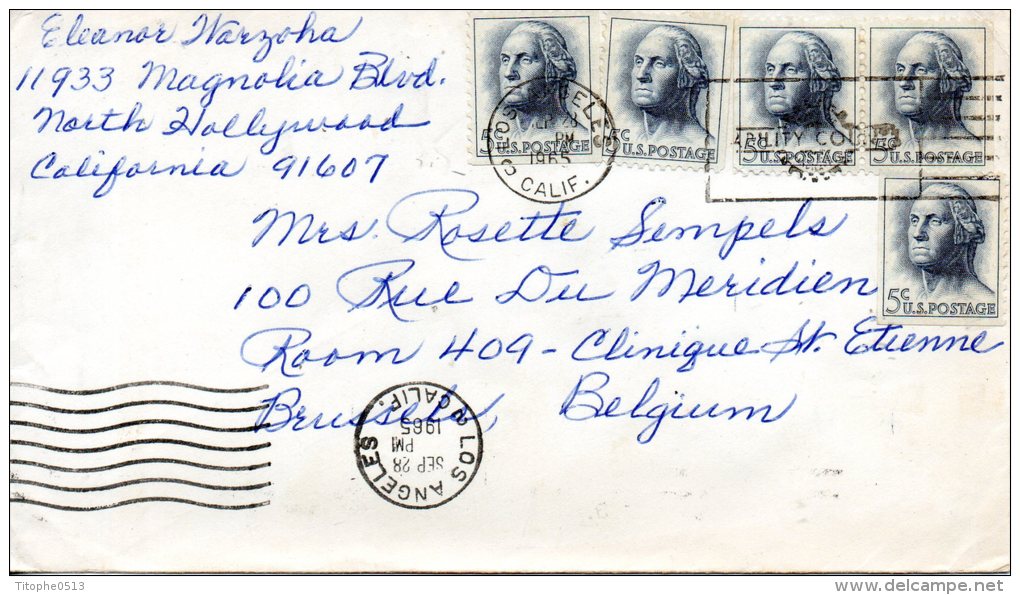 Eleanor Warzoha
11933 Magnolia Blvd.
North Hollywood
California 91607
5c U.S. POSTAGE
5c U.S. POSTAGE
5c U.S. POSTAGE
5c U.S. POSTAGE
5c U.S. POSTAGE
LOS ANGELES CALIF.
SEP 28
PM
1965
Mrs. Rosette Sempels
100 Rue Du Meridien
Room 409 - Clinique St. Etienne
Brussels, Belgium
LOS ANGELES 2 CALIF.
SEP 28
PM
1965
Titophe0513
www.delcampe.net